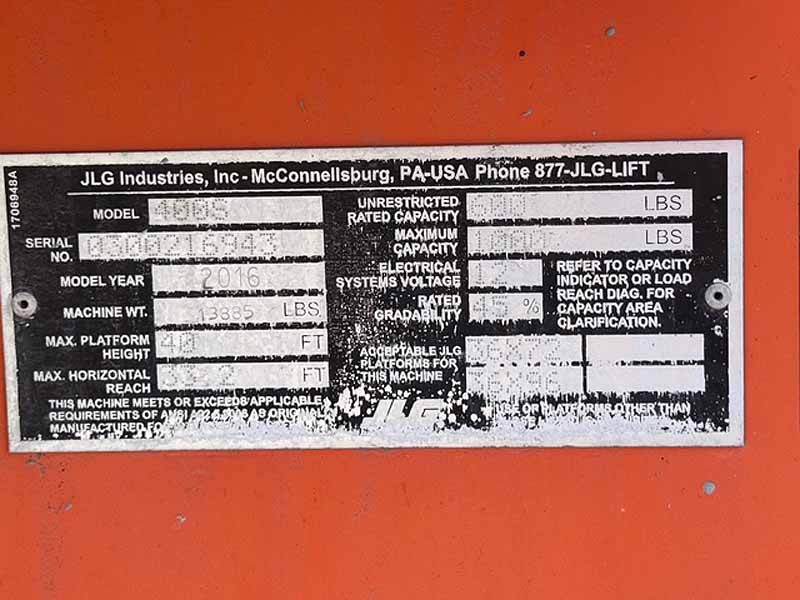 1706948A
JLG Industries, Inc - McConnellsburg, PA-USA Phone 877-JLG-LIFT
MODEL 400S
SERIAL NO. 0300216943
MODEL YEAR 2016
MACHINE WT. 13885 LBS
MAX. PLATFORM HEIGHT 40 FT
MAX. HORIZONTAL REACH FT
THIS MACHINE MEETS OR EXCEEDS APPLICABLE
REQUIREMENTS OF ANSI AS ORIGINALLY
MANUFACTURED
UNRESTRICTED RATED CAPACITY 600 LBS
MAXIMUM CAPACITY 1000 LBS
ELECTRICAL SYSTEMS VOLTAGE 12
RATED GRADABILITY 45 %
REFER TO CAPACITY
INDICATOR OR LOAD
REACH DIAG. FOR
CAPACITY AREA
CLARIFICATION.
ACCEPTABLE JLG
PLATFORMS FOR
THIS MACHINE
JLG
USE OR PLATFORMS OTHER THAN